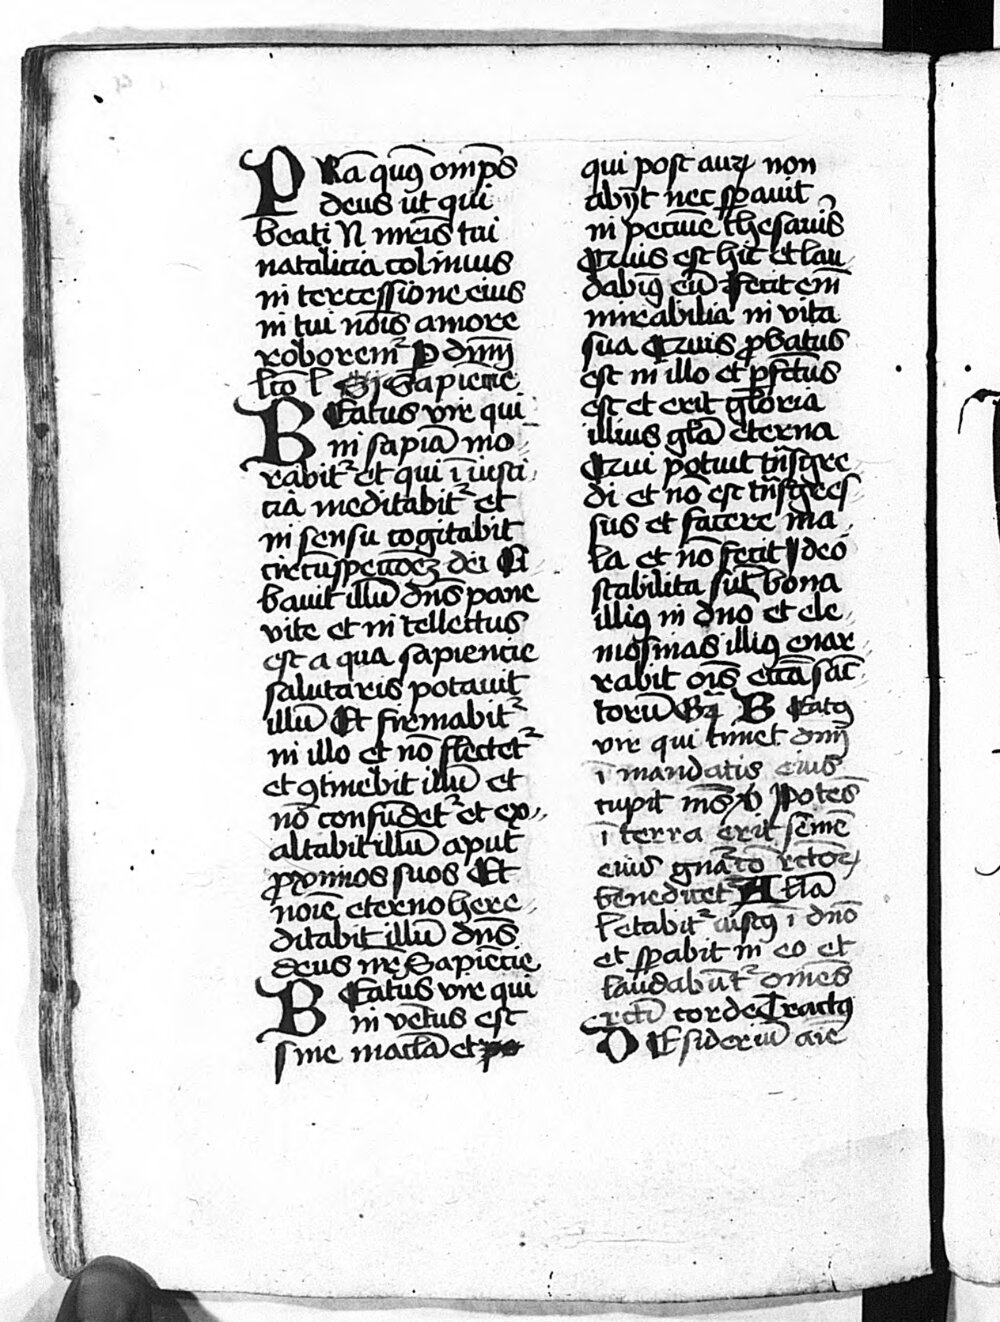 PRa̅ qu̅s om̅ps
deus ut qui
beati N mr̅is tui
natalicia colimus
in tercessione eius
in tui no̅is amore
roborem̉ P dn̅m
lc̅o l Sapien̅tie
BEatus vir qui
in sapia̅ mo
rabit̉ et qui i̅ iusti
tia meditabit̉ et
in sensu cogitabit
circu̅spectio̅eꝫ dei Ci
bavit illu̅ dn̅s pane
vite et in tellectus
est a qua sapientie
salutaris potavit
illu̅ Et firmabit̉
in illo et no̅ flectet̉
et ꝯtinebit illu̅ et
no̅ confu̅det̉ et ex
altabit illu̅ aput
ꝓximos suos Et
no̅ie eterno here
ditabit illu̅ dn̅s
deus nr̅ Sapien̅tie
BEatus vir qui
in ve̅tus est
sine macl̅a et
qui post auꝝ non
abijt nec sꝑavit
in pecu̅ie thesauris
Quis est hic et lau
dabim̉ eu̅ Fecit em̅
mirabilia in vita
sua Quis ꝓbatus
est in illo et ꝑfc̅tus
est et erit gloria
illius gl̅a eterna
Qui potuit tn̅sgre
di et no̅ est tn̅sgres
sus et facere ma
la et no̅ fecit Ideo
stabilita su̅t bona
illiꝰ in dn̅o et ele
mosinas illiꝰ enar
rabit om̅is ecc̅a sac̅
toru̅ Gr̅ BEatꝰ
vir qui timet dn̅m
i̅ mandatis eius
cupit ni̅s V Potes̅
i̅ terra erit seme̅
eius gn̅ac̅o rc̅toꝝ
benedicet̉ Alla̅
Letabit̉ iustꝰ i̅ dn̅o
et sꝑabit in eo et
laudabu̅t̉ omes̅
rc̅ti corde Tractꝰ
DEsideriu̅ ai̅e